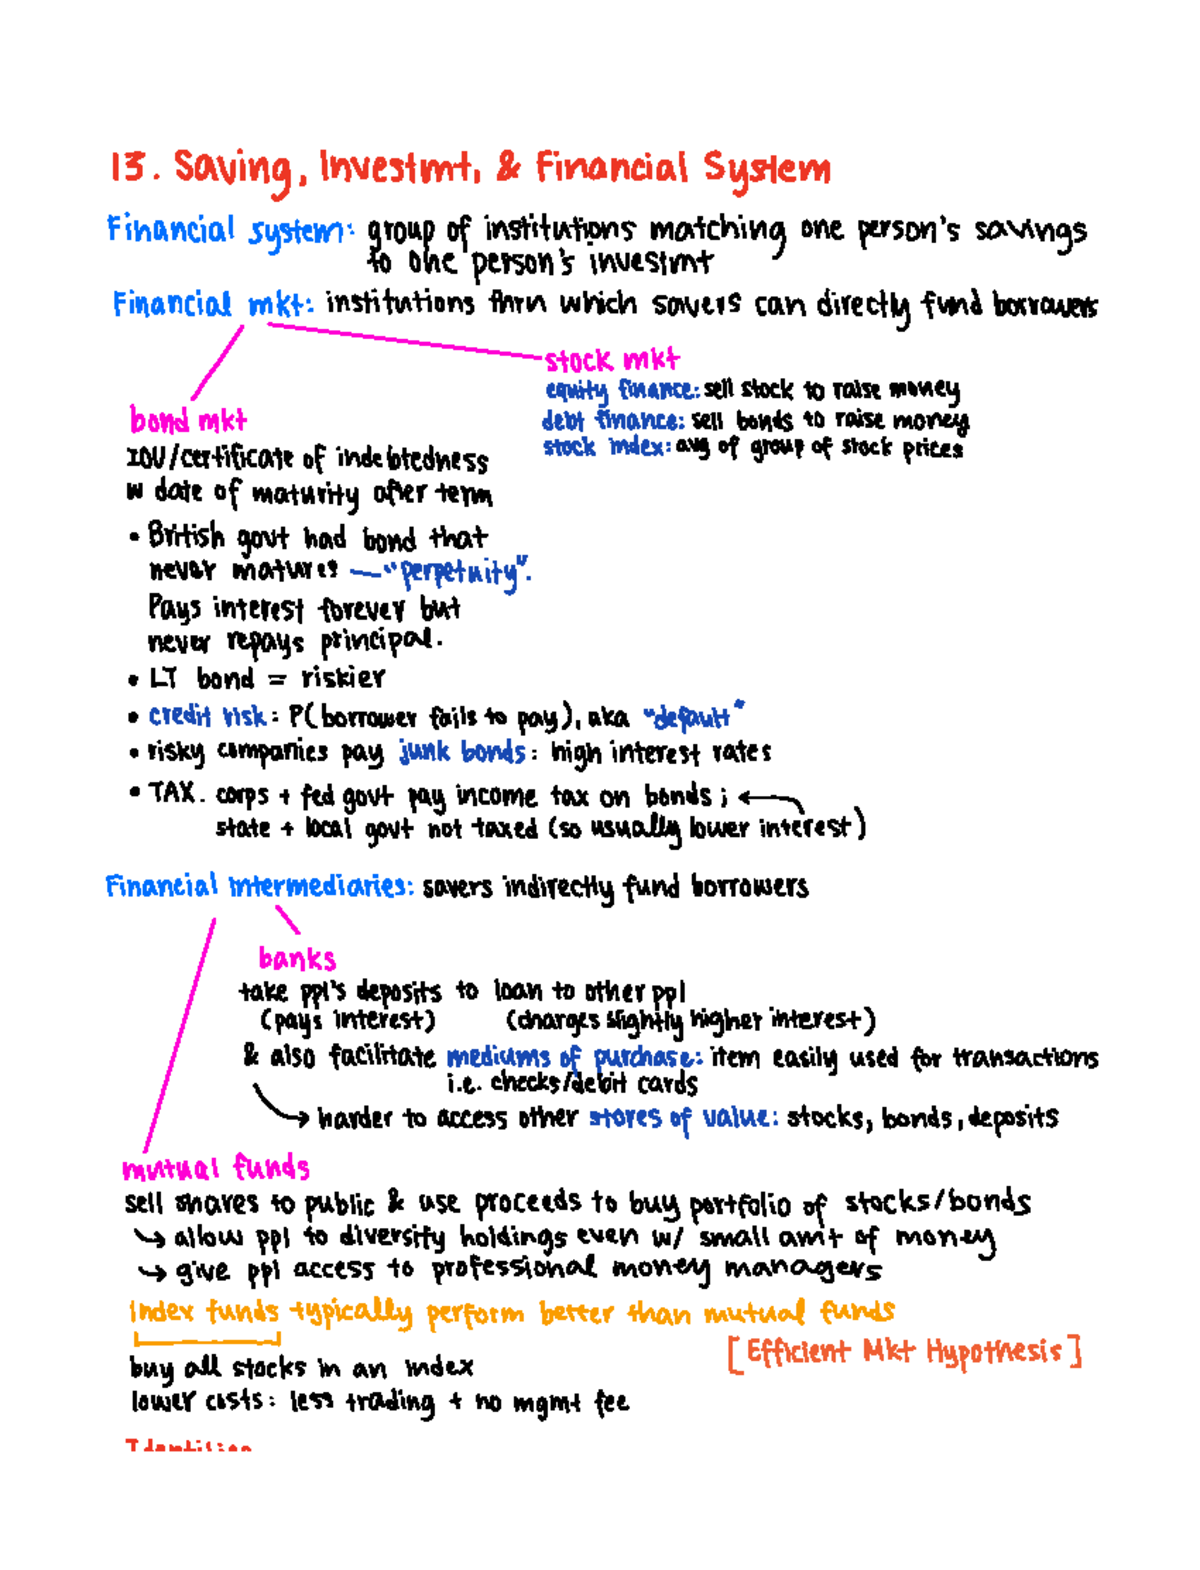 13. Saving, Investmt, & Financial System
Financial system: group of institutions matching one person's savings
to one person's investmt
Financial mkt: institutions thru which savers can directly fund borrowers
stock mkt
equity finance: sell stock to raise money
debt finance: sell bonds to raise money
stock index: avg of group of stock prices
bond mkt
IOU/certificate of indebtedness
w date of maturity after term
• British govt had bond that
never matures — "perpetuity".
Pays interest forever but
never repays principal.
• LT bond = riskier
• credit risk: P(borrower fails to pay), aka "default"
• risky companies pay junk bonds: high interest rates
• TAX. corps + fed govt pay income tax on bonds;
state + local govt not taxed (so usually lower interest)
Financial Intermediaries: savers indirectly fund borrowers
banks
take ppl's deposits to loan to other ppl
(pays interest) (charges slightly higher interest)
& also facilitate mediums of purchase: item easily used for transactions
i.e. checks/debit cards
→ harder to access other stores of value: stocks, bonds, deposits
mutual funds
sell shares to public & use proceeds to buy portfolio of stocks/bonds
↳ allow ppl to diversify holdings even w/ small amt of money
↳ give ppl access to professional money managers
Index funds typically perform better than mutual funds
[Efficient Mkt Hypothesis]
buy all stocks in an index
lower costs: less trading + no mgmt fee